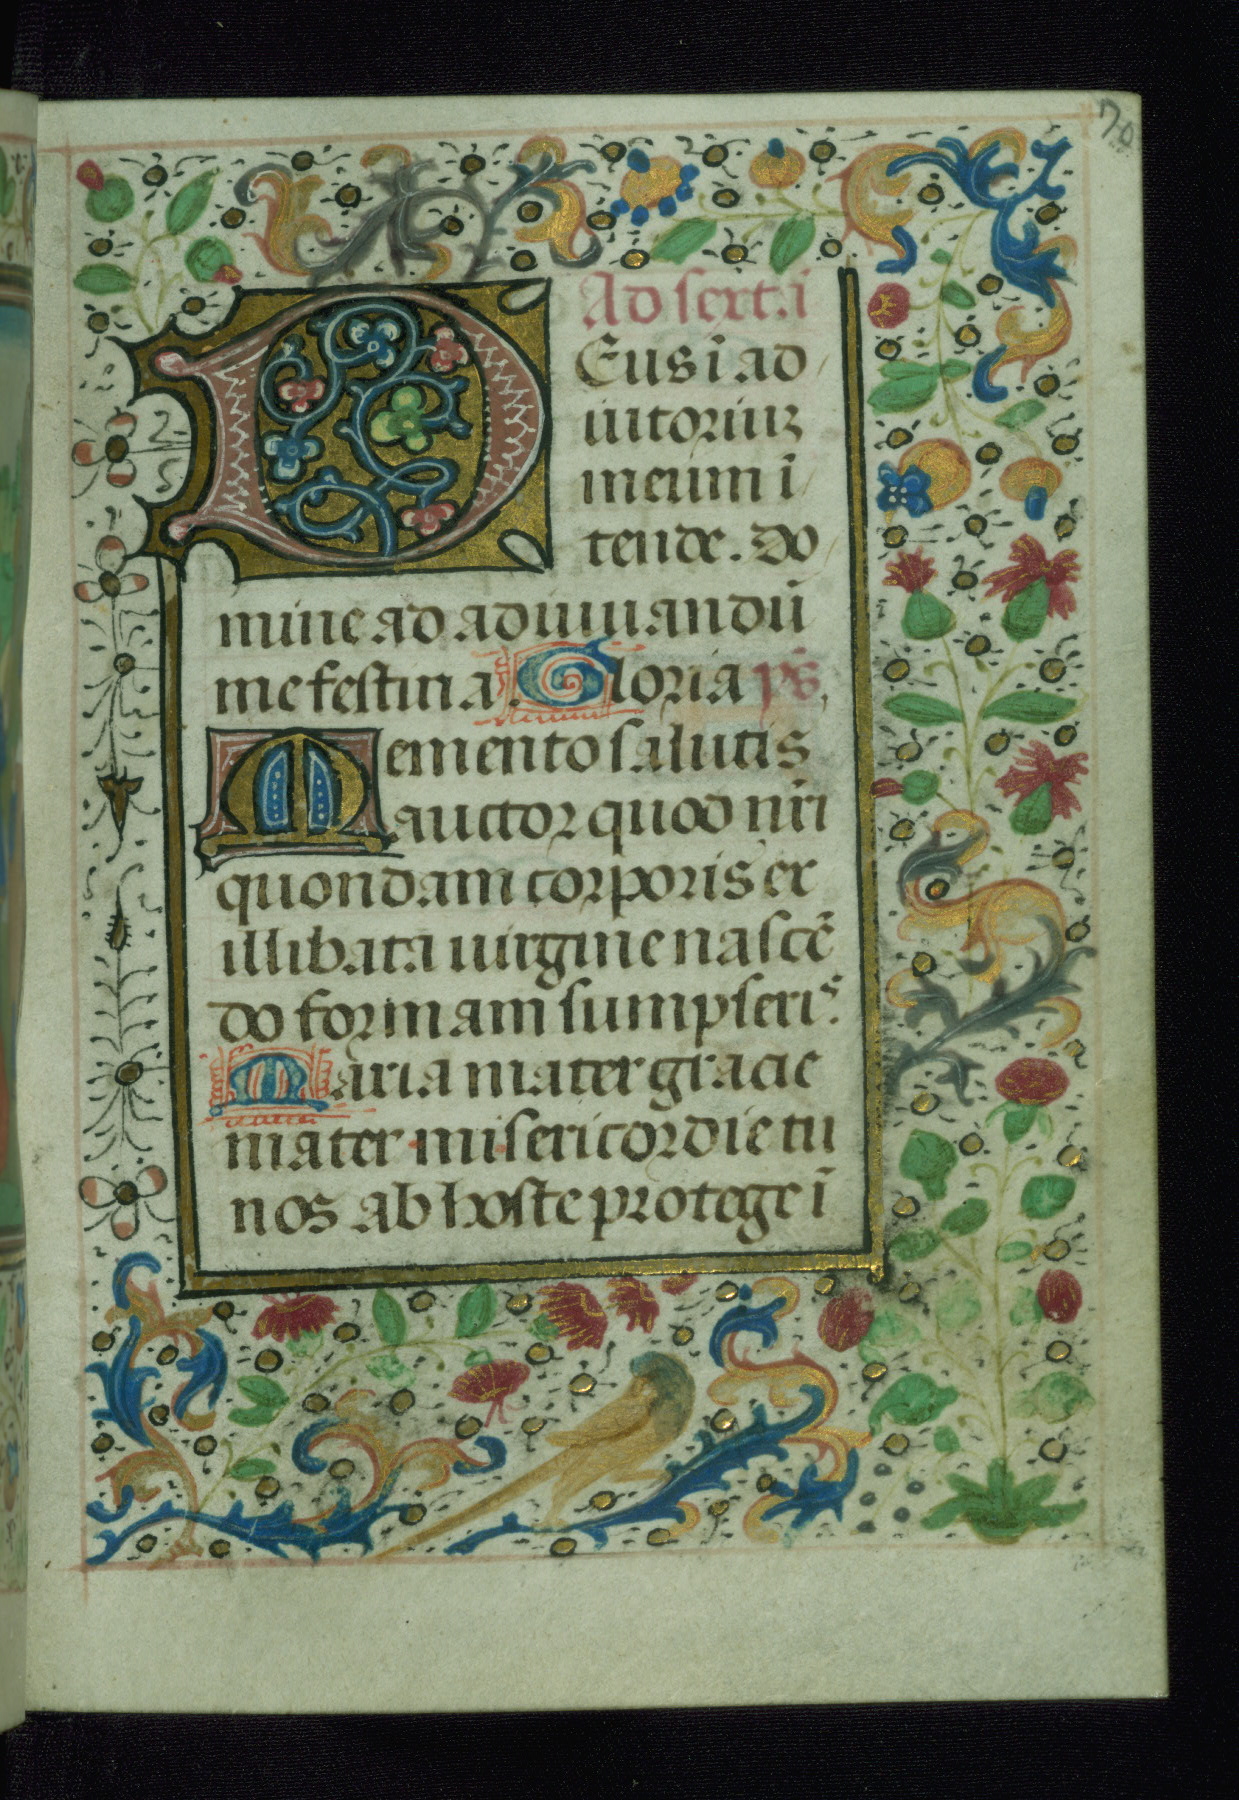 70
Ad sext.ā
DEus ī ad
iutoriuʒ
meum ī
tende. Do
mine ad adiuuandū
me festina. Gloria pr̄s
Memento salutis
auctor quod nr̄i
quondam corporis ex
illibata uirgine nascē
do formam sumpseris.
Maria mater gracie
mater misericordie tu
nos ab hoste protege ī